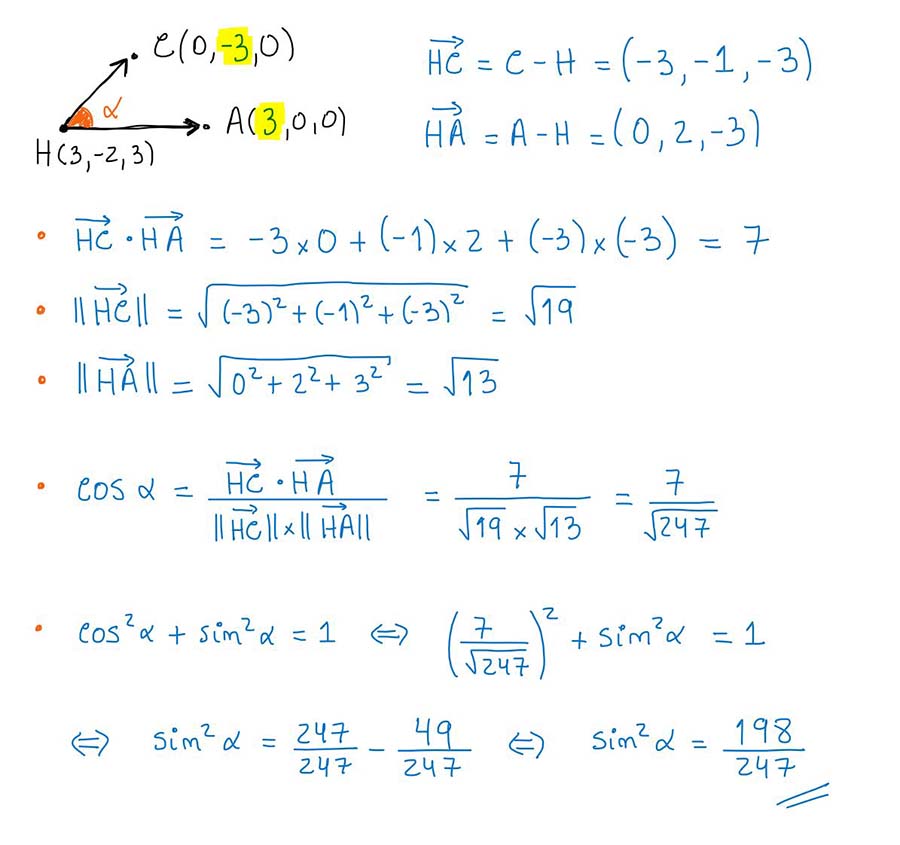 C(0,-3,0)
α
A(3,0,0)
H(3,-2,3)
HC⃗ = C - H = (-3,-1,-3)
HA⃗ = A - H = (0,2,-3)
• HC⃗ · HA⃗ = -3×0 + (-1)×2 + (-3)×(-3) = 7
• ||HC⃗|| = √((-3)²+(-1)²+(-3)²) = √19
• ||HA⃗|| = √(0²+2²+3²) = √13
• cos α = (HC⃗ · HA⃗)/(||HC⃗||×||HA⃗||) = 7/(√19×√13) = 7/√247
• cos²α + sin²α = 1 ⇔ (7/√247)² + sin²α = 1
⇔ sin²α = 247/247 - 49/247 ⇔ sin²α = 198/247